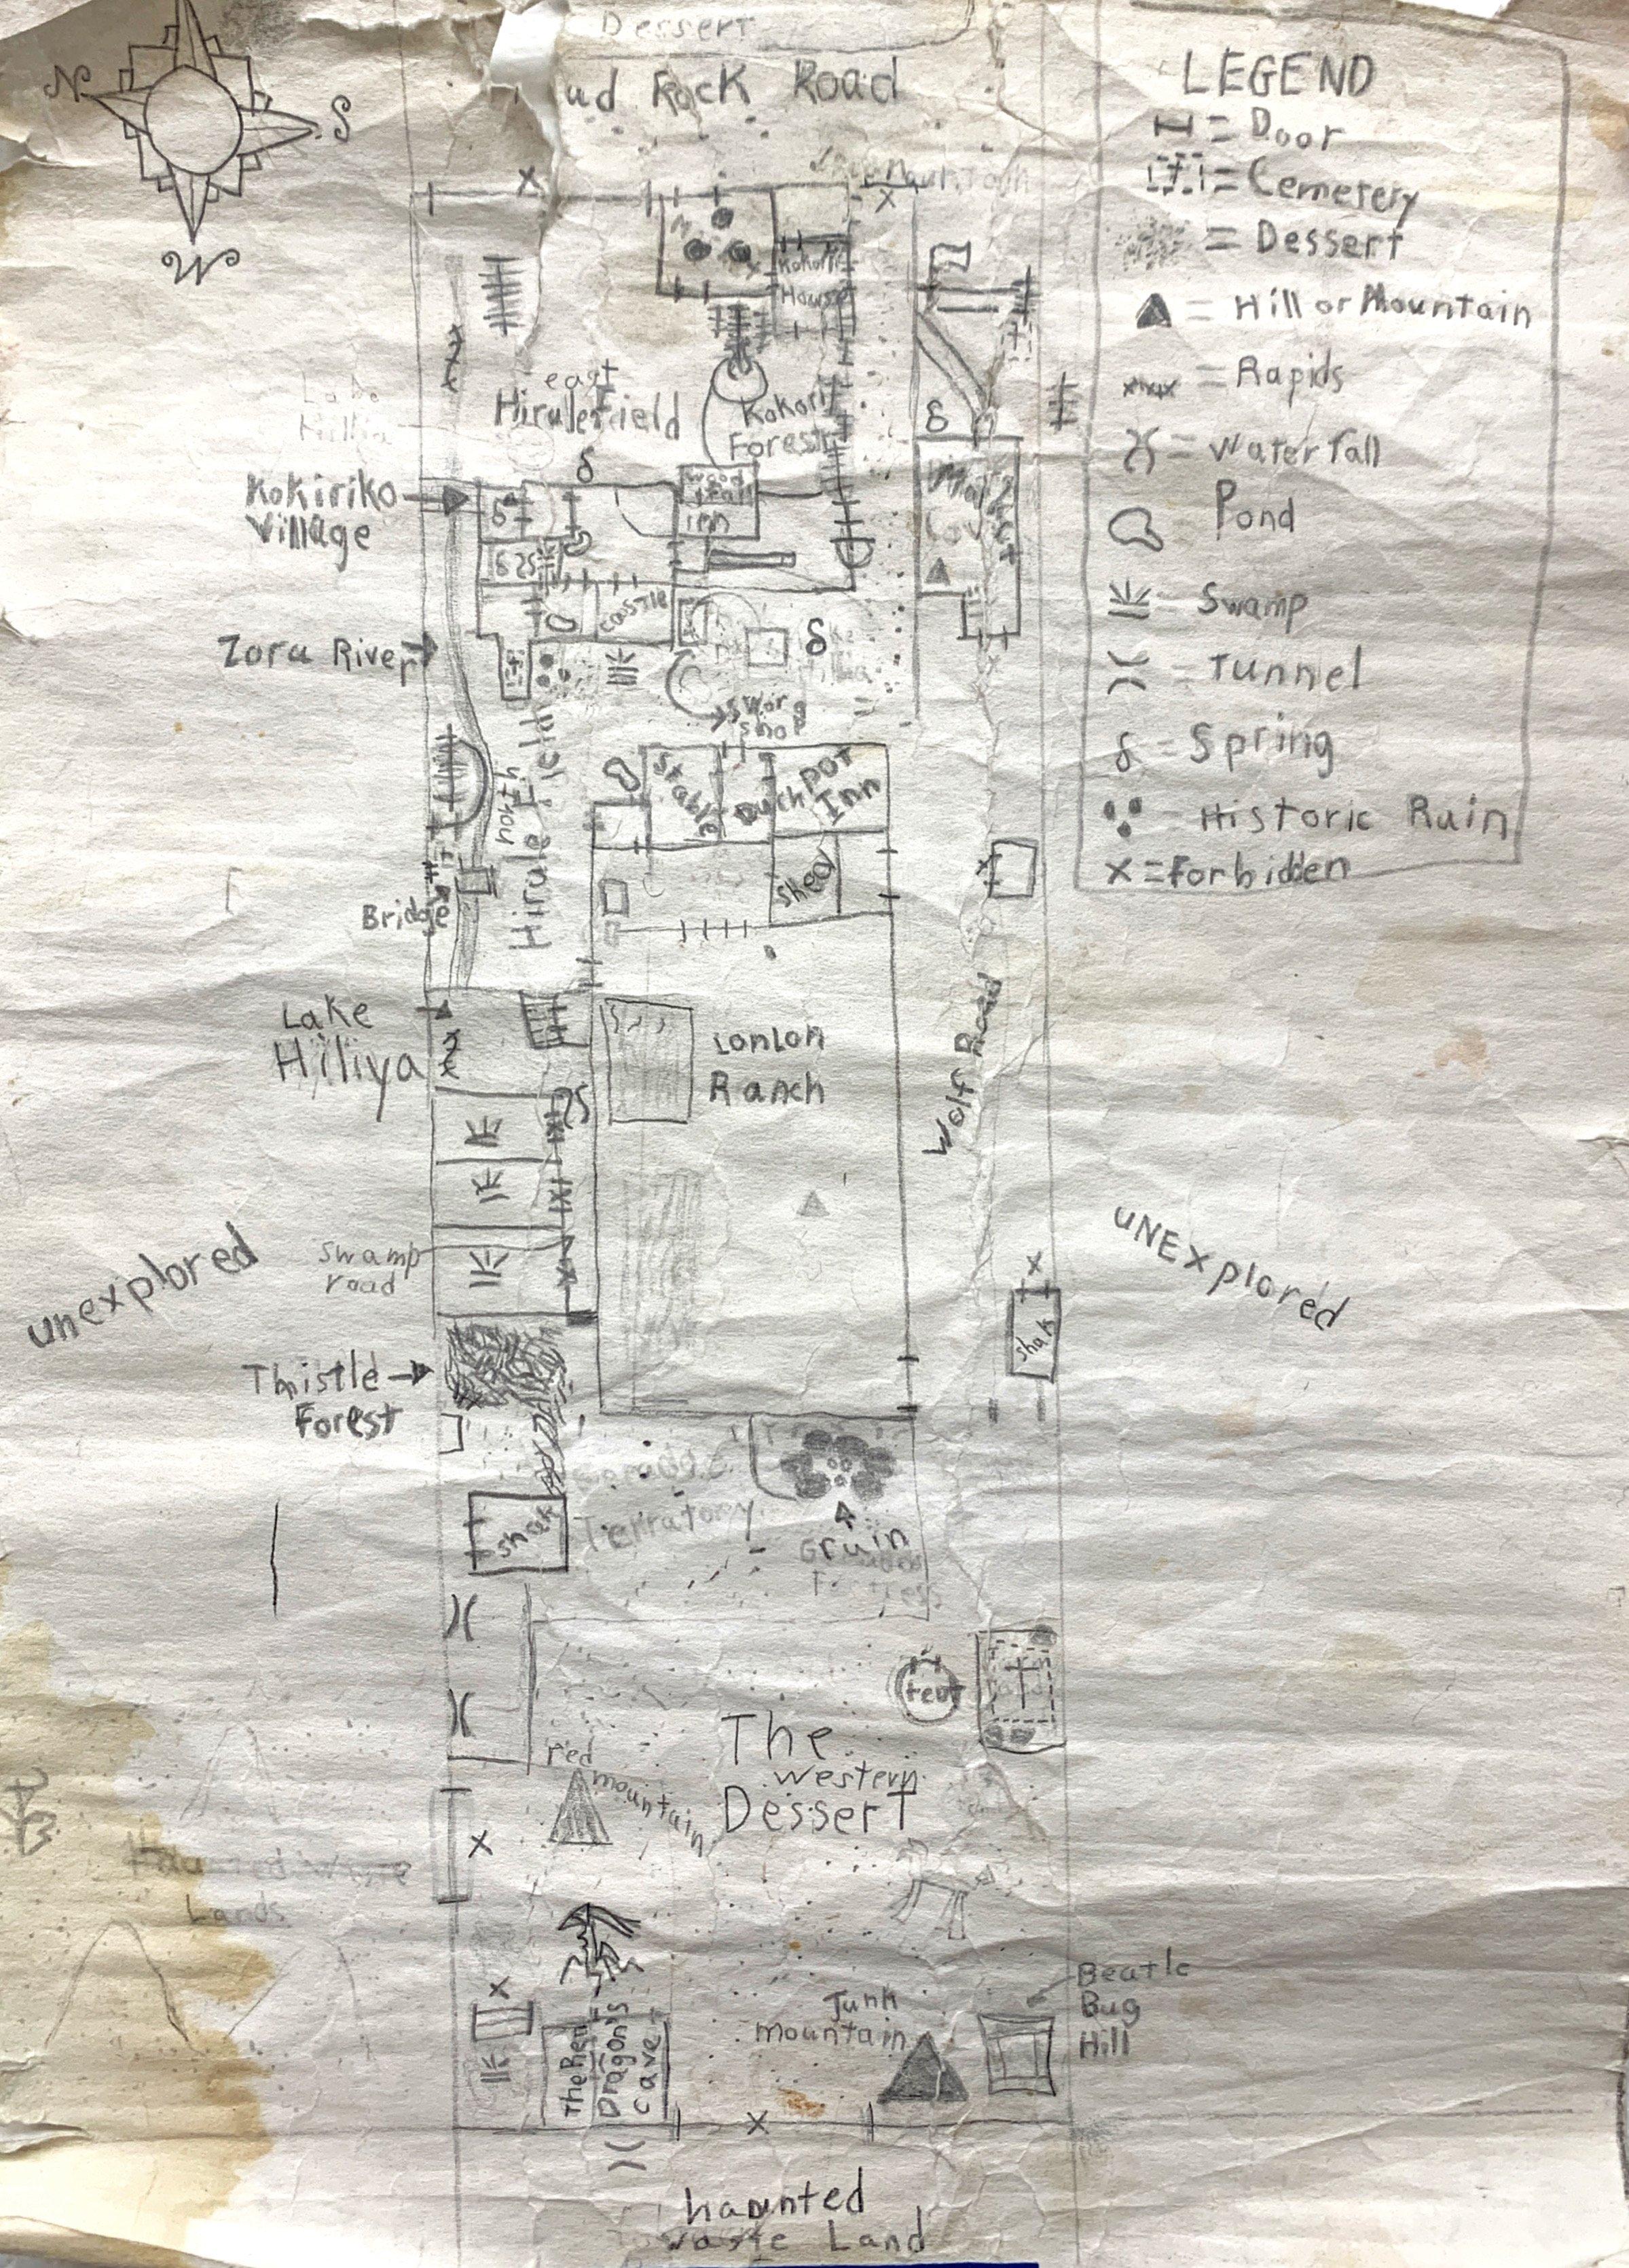 Dessert
ud Rock Road
N
S
W
LEGEND
= Door
= Cemetery
= Dessert
= Hill or Mountain
= Rapids
= Waterfall
Pond
= Swamp
= Tunnel
= Spring
= Historic Ruin
x = Forbidden
Kokori
House
east
Hirulefield
Kokori
Forest
Kokiriko
Village
inn
castle
Zora River
Sword
Shop
north
Hirule Field
Stable
Dutch pot
Inn
Shed
Bridge
Lake
Hiliya
LonLon
Ranch
Wolf Road
Swamp
road
unexplored
UNEXplored
Shak
Thistle
Forest
Shak
Terratory
Gruin
Fortress
tent
The
western
Dessert
red
mountain
Haunted Waste
Lands
Beatle
Bug
Hill
Junk
mountain
Dragon's
cave
haunted
Waste Land